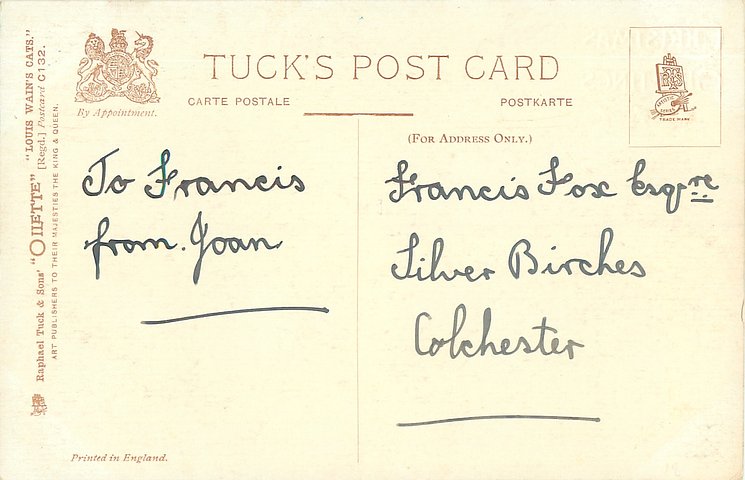 TUCK'S POST CARD
CARTE POSTALE
POSTKARTE
By Appointment.
(FOR ADDRESS ONLY.)
TRADE MARK
To Francis
from. Joan
Francis Fox Esqre
Silver Birches
Colchester
"LOUIS WAIN'S CATS."
Raphael Tuck & Sons' "OILETTE" [Regd.] Postcard C132.
ART PUBLISHERS TO THEIR MAJESTIES THE KING & QUEEN.
Printed in England.